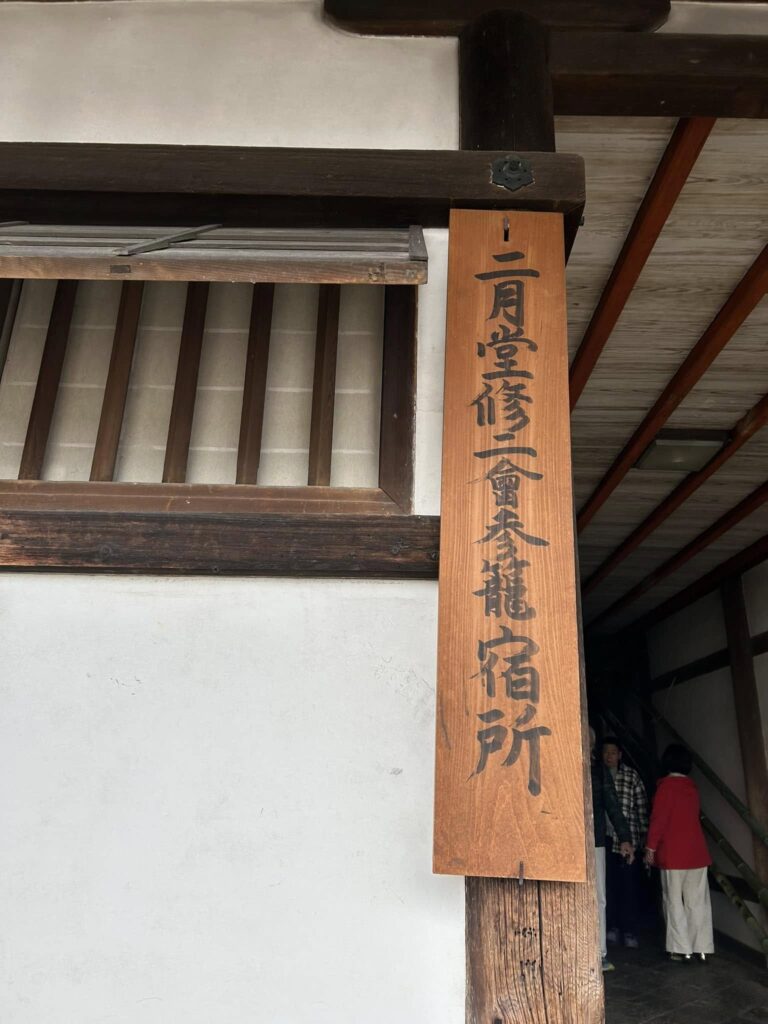 二月堂修二會参籠宿所